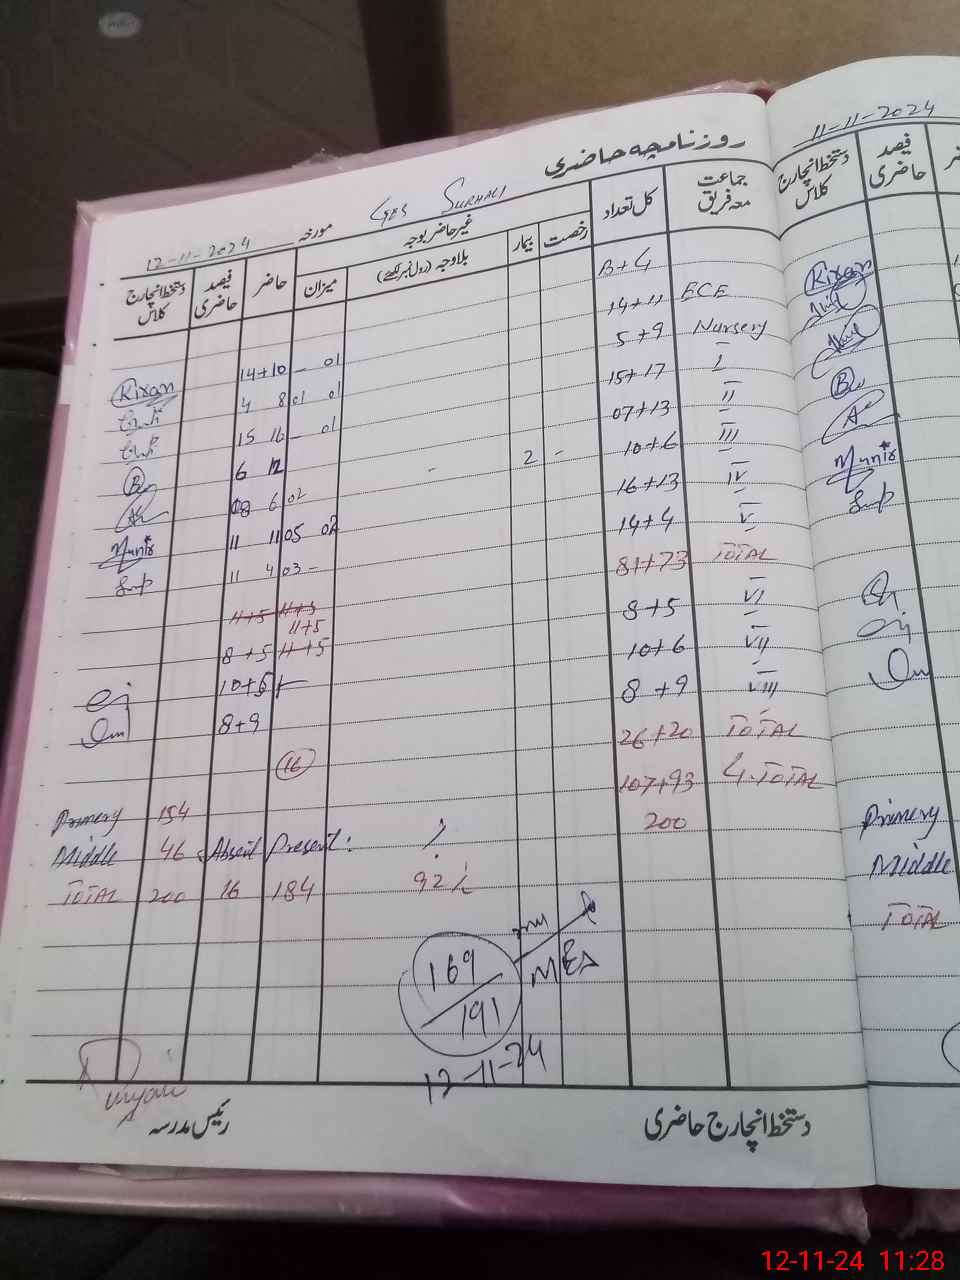 روزنامچہ حاضری
GES SURHALI
مورخہ 12-11-2024
جماعت معہ فریق کل تعداد غیر حاضر بوجہ حاضر فیصد حاضری دستخط انچارج کلاس
رخصت بیمار بلاوجہ (رول نمبر لکھیے) میزان
B+G
ECE 14+11 14+10 - 01 Kiran
Nursery 5+9 4 8 01 01
I 15+17 15 16 - 01
II 07+13 6 12
III 10+6 - 2 - 08 6 02
IV 16+13 11 11 05 02 Munir
V 14+4 11 4 03 -
TOTAL 81+73 11+5 11+5
11+5
VI 8+5 8+5 11+5
VII 10+6 10+6
VIII 8+9 8+9
TOTAL 26+20
G.TOTAL 107+93 16
200
Primery 154
Middle 46 Absent Present: %
TOTAL 200 16 184 92%
169/191
MEA
12-11-24
رئیس مدرسہ
دستخط انچارج حاضری
11-11-2024
فیصد حاضری
دستخط انچارج کلاس
Kiran
Munir
Primery
Middle
TOTAL
12-11-24 11:28